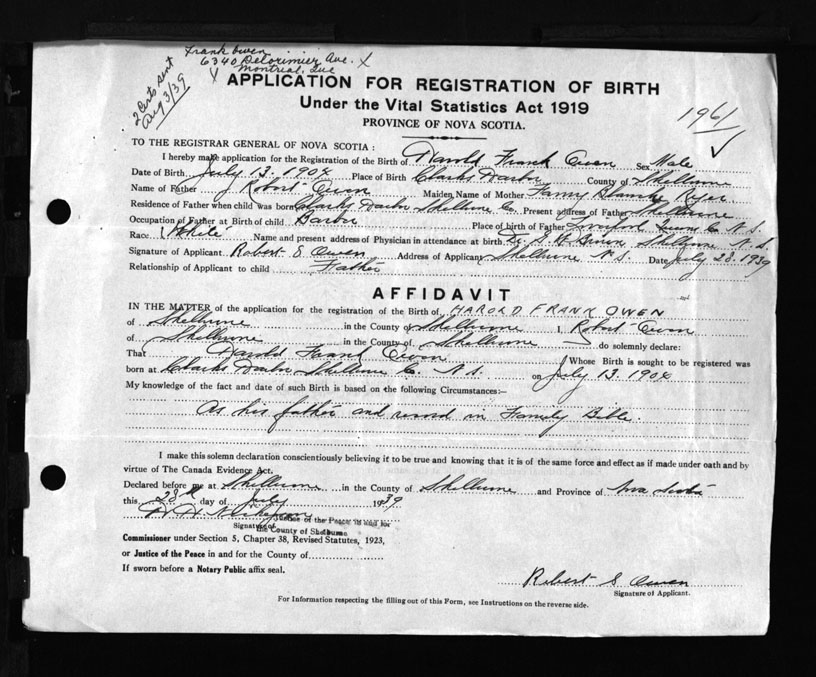 Frank Owen
6340 Delorimier Ave. X
Montreal, Que
2 Certs sent
Aug 3/39
APPLICATION FOR REGISTRATION OF BIRTH
Under the Vital Statistics Act 1919
1961
PROVINCE OF NOVA SCOTIA.
TO THE REGISTRAR GENERAL OF NOVA SCOTIA :
I hereby make application for the Registration of the Birth of Harold Frank Owen Sex Male
Date of Birth July 13. 1904 Place of Birth Clarks Harbor County of Shelburne
Name of Father Robert Owen Maiden Name of Mother Fanny
Residence of Father when child was born Clarks Harbor Shelburne Co. Present address of Father Shelburne
Occupation of Father at Birth of child Barber Place of birth of Father Co N. S.
Race White Name and present address of Physician in attendance at birth Dr. Shelburne N. S.
Signature of Applicant Robert S Owen Address of Applicant Shelburne N. S. Date July 28. 1939
Relationship of Applicant to child Father
AFFIDAVIT
IN THE MATTER of the application for the registration of the Birth of HAROLD FRANK OWEN
of Shelburne in the County of Shelburne I, Robert Owen
of Shelburne in the County of Shelburne do solemnly declare:
That Harold Frank Owen Whose Birth is sought to be registered was
born at Clarks Harbor Shelburne Co. N. S. on July 13. 1904
My knowledge of the fact and date of such Birth is based on the following Circumstances:—
As his father and record in Family Bible.
I make this solemn declaration conscientiously believing it to be true and knowing that it is of the same force and effect as if made under oath and by
virtue of The Canada Evidence Act.
Declared before me at Shelburne in the County of Shelburne and Province of Nova Scotia
this 28th day of July 1939
Justice of the Peace in and for
Signature of the County of Shelburne
Commissioner under Section 5, Chapter 38, Revised Statutes, 1923,
or Justice of the Peace in and for the County of
If sworn before a Notary Public affix seal.
Robert S Owen
Signature of Applicant.
For Information respecting the filling out of this Form, see Instructions on the reverse side.